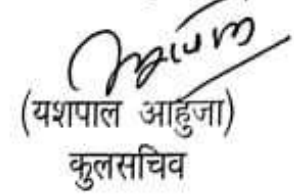 (यशपाल आहुजा)
कुलसचिव